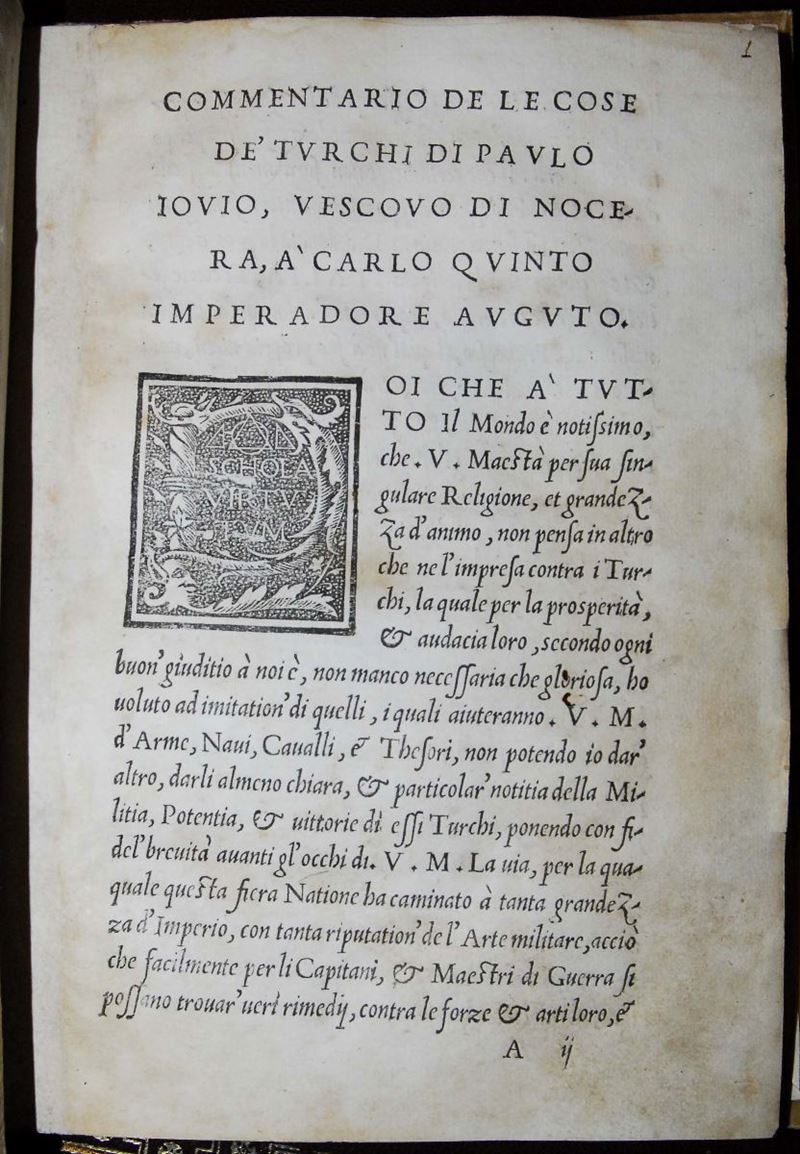 1
COMMENTARIO DE LE COSE
DE' TVRCHI DI PAVLO
IOVIO, VESCOVO DI NOCE-
RA, A' CARLO QVINTO
IMPERADORE AVGVTO.
OI CHE A' TVT-
TO Il Mondo è notissimo,
che. V. Maestà per sua sin-
gulare Religione, et grandez-
za d'animo, non pensa in altro
che ne l'impresa contra i Tur-
chi, la quale per la prosperità,
& audacia loro, secondo ogni
buon' giuditio à noi è, non manco necessaria che gloriosa, ho
uoluto ad imitation' di quelli, i quali aiuteranno. V. M.
d'Arme, Naui, Caualli, & Thesori, non potendo io dar'
altro, darli almeno chiara, & particolar' notitia della Mi-
litia, Potentia, & uittorie di essi Turchi, ponendo con fi-
del' breuità auanti gl'occhi di. V. M. La uia, per la qua-
quale questa fiera Natione ha caminato à tanta grandez-
za d'Imperio, con tanta riputation' de l'Arte militare, acciò
che facilmente per li Capitani, & Maestri di Guerra si
possano trouar' ueri rimedij, contra le forze & arti loro, &
A ij